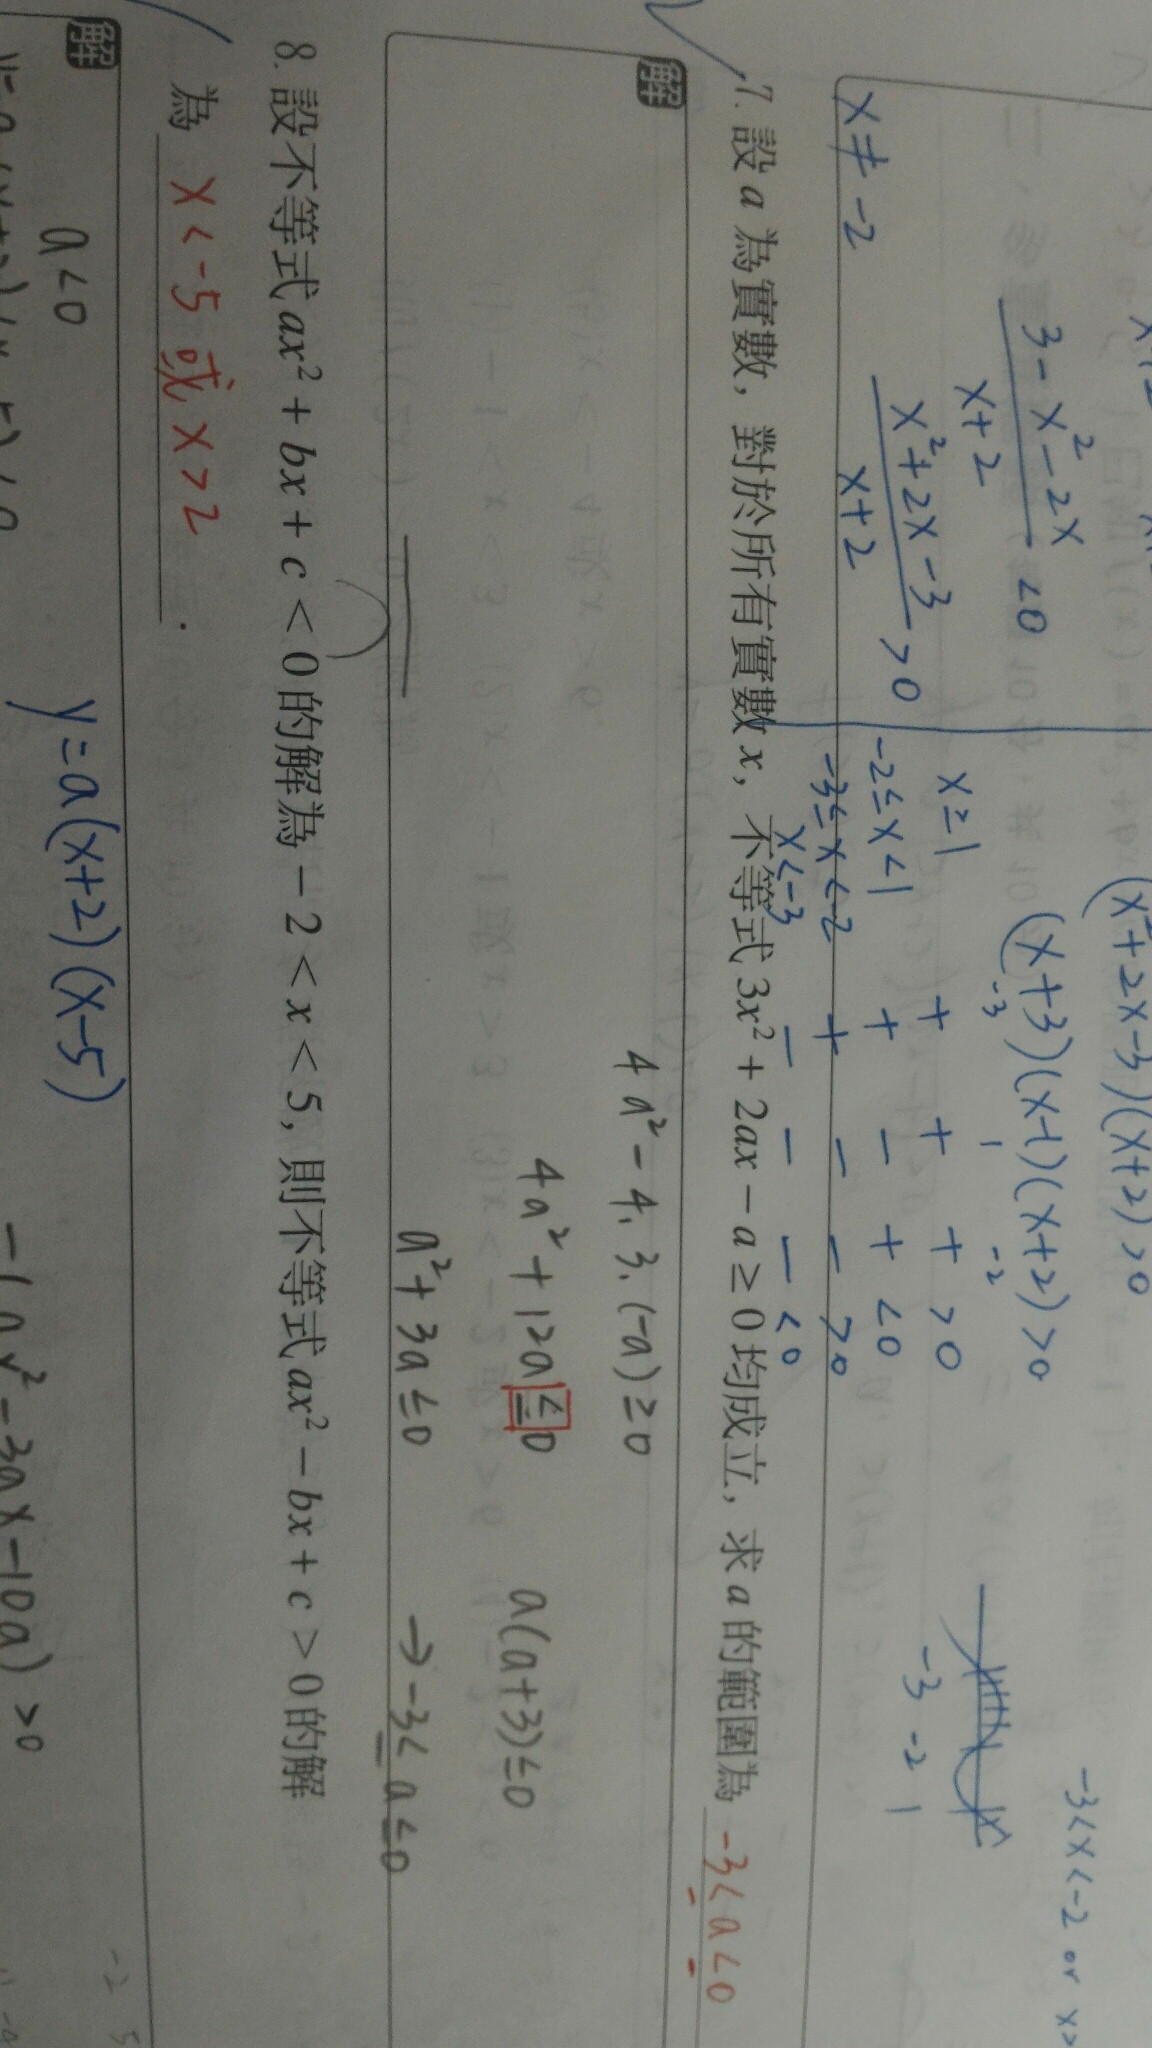 3-x²-2x / x+2 <0
x²+2x-3 / x+2 >0
x≠-2
(x²+2x-3)(x+2)>0
(x+3)(x-1)(x+2)>0
-3 1 -2
x≥1 + + + >0
-2≤x<1 + - + <0
-3≤x<-2 + - - >0
x<-3 - - - <0
-3<x<-2 or x>
-3 -2 1
7. 設a為實數，對於所有實數x，不等式3x²+2ax-a≥0均成立，求a的範圍為 -3≤a≤0
解
4a²-4.3.(-a)≥0
4a²+12a≤0
a(a+3)≤0
a²+3a≤0
→-3≤a≤0
8. 設不等式ax²+bx+c<0的解為-2<x<5，則不等式ax²-bx+c>0的解
為 x<-5 或 x>2 .
解
a<0
y=a(x+2)(x-5)
-3ax-10a)>0
-2 5